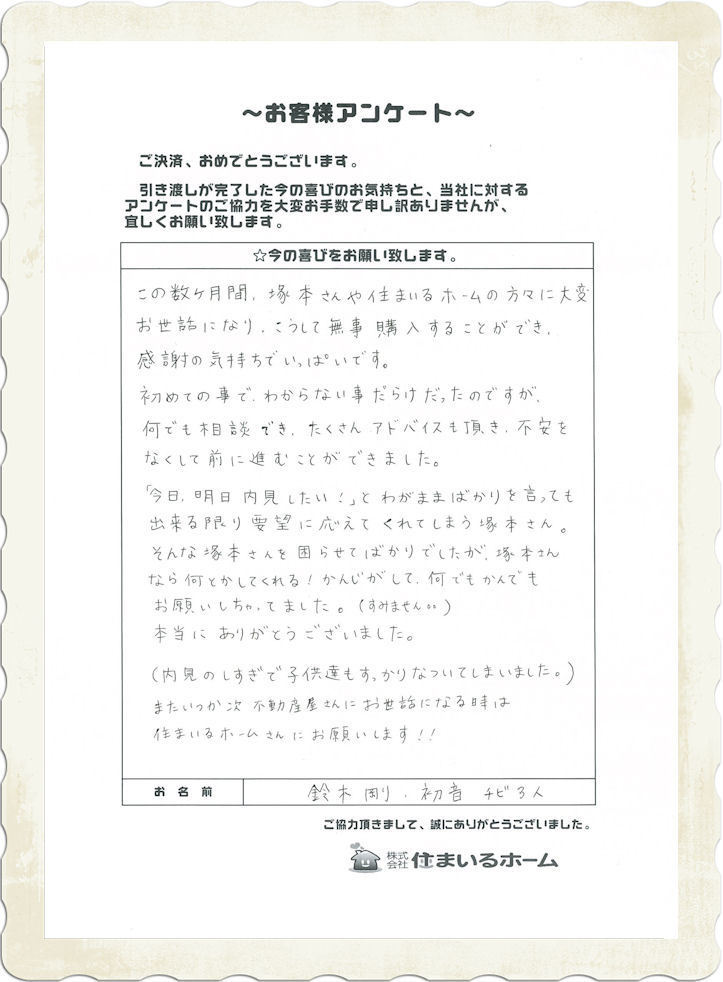 ～お客様アンケート～
ご決済、おめでとうございます。
引き渡しが完了した今の喜びのお気持ちと、当社に対する
アンケートのご協力を大変お手数で申し訳ありませんが、
宜しくお願い致します。
☆今の喜びをお願い致します。
この数ヶ月間、塚本さんや住まいるホームの方々に大変
お世話になり、こうして無事購入することができ、
感謝の気持ちでいっぱいです。
初めての事で、わからない事だらけだったのですが、
何でも相談でき、たくさんアドバイスも頂き、不安を
なくして前に進むことができました。
「今日、明日内見したい！」とわがままばかりを言っても
出来る限り要望に応えてくれてしまう塚本さん。
そんな塚本さんを困らせてばかりでしたが、塚本さん
なら何とかしてくれる！かんじがして、何でもかんでも
お願いしちゃってました。(すみません。。)
本当にありがとうございました。
(内見のしすぎで子供達もすっかりなついてしまいました。)
またいつか次不動産屋さんにお世話になる時は
住まいるホームさんにお願いします!!
お名前 鈴木剛、初音 チビ3人
ご協力頂きまして、誠にありがとうございました。
株式会社 住まいるホーム